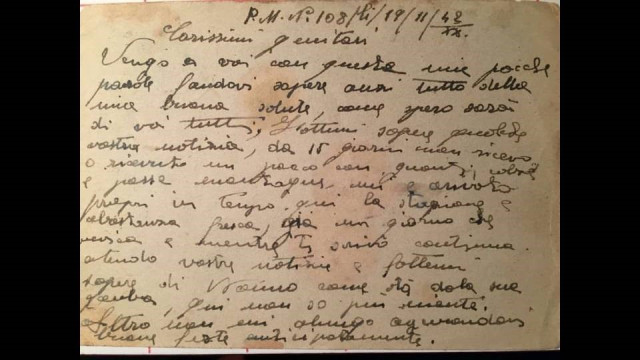 P.M. N. 108/ li / 19/11/42
XX.
Carissimi genitori
Vengo a voi con queste mie poche
parole fandovi sapere anzi tutto della
mia buona salute, come spero sarà
di voi tutti, Fottemi sapere qualche
vostre notizia, da 15 giorni non ricevo
o ricevuto un pacco con guanti,
e passa montagne, mi è arivato
propri in tempo qui la stagione e
abastanza fresca, già un giorno che
nevica e mentre ti scrivo continua.
atendo vostre notizie e fattemi
sapere di Nonno come stà dala sua
gamba, qui non so più niente.
Altro non mi alungo agurandovi
buone feste anticipatamente.